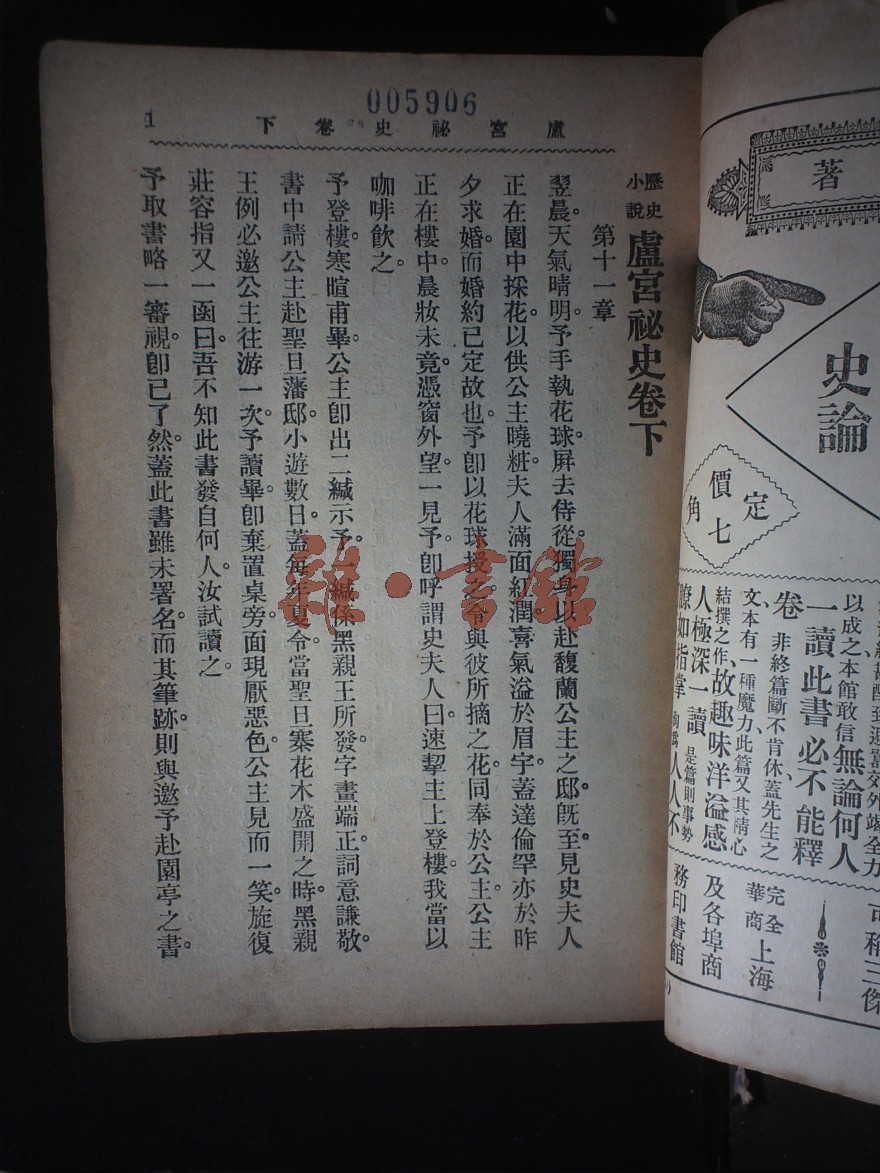 005906
盧宮祕史卷下
1
歷史
小說
盧宮祕史卷下
第十一章
翌晨。天氣晴明。予手執花球。屏去侍從。獨身以赴馥蘭公主之邸。旣至。見史夫人
正在園中採花。以供公主曉粧。夫人滿面紅潤。喜氣溢於眉宇。蓋達倫罕亦於昨
夕求婚。而婚約已定故也。予卽以花球授之。令與彼所摘之花。同奉於公主。公主
正在樓中。晨妝未竟。憑窗外望。一見予。卽呼謂史夫人曰。速挈主上登樓。我當以
咖啡飲之。
予登樓。寒暄甫畢。公主卽出二緘示予。一緘係黑親王所發。字畫端正。詞意謙敬。
書中請公主赴聖旦藩邸。小遊數日。蓋每年夏令。當聖旦寨花木盛開之時。黑親
王例必邀公主往游一次。予讀畢。卽棄置桌旁。面現厭惡色。公主見而一笑。旋復
莊容指又一函曰。吾不知此書發自何人。汝試讀之。
予取書略一審視。卽已了然。蓋此書雖未署名。而其筆跡。則與邀予赴園亭之書。
雜·書館
著
史論
定價七角
以成之本館敢信無論何人
一讀此書必不能釋
卷、非終篇斷不肯休蓋先生之
文本有一種魔力此篇又其精心
結撰之作、故趣味洋溢感
人極深一讀是篇則事勢
瞭如指掌
人人不
可稱三傑
完全
華商
上海
及各埠商
務印書館